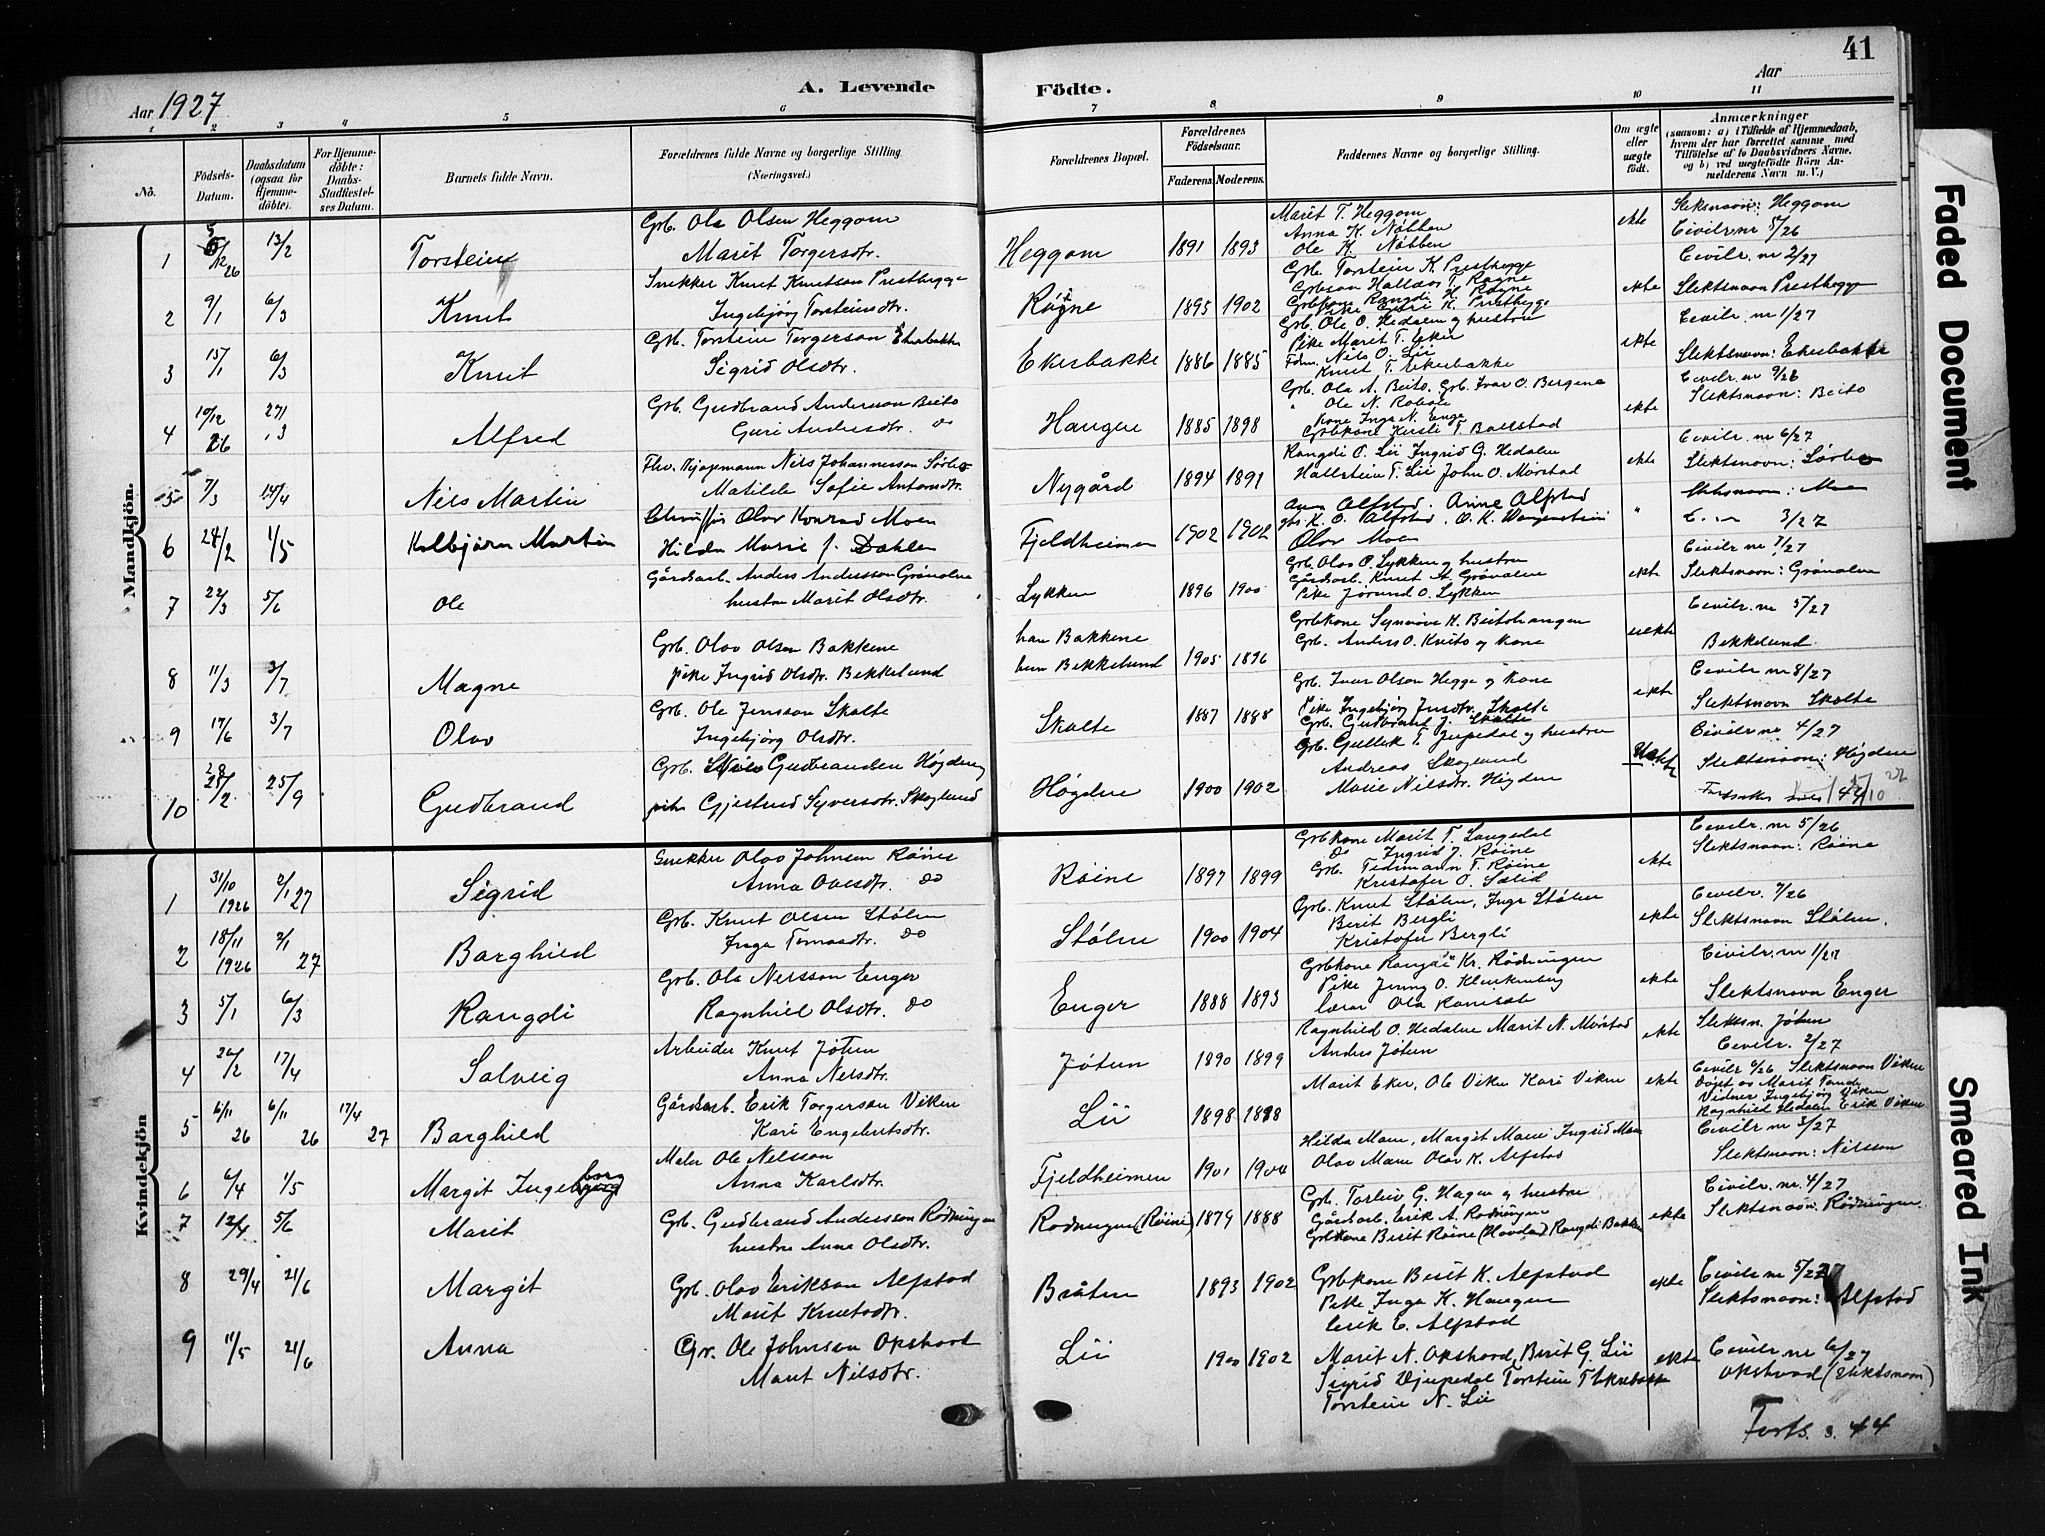 41
Aar 1927
A. Levende
Födte.
Aar
1 2 3 4 5 6 7 8 9 10 11
No.
Födsels-Datum.
Daabsdatum (ogsaa for Hjemme-döbte).
For Hjemme-döbte: Daabs-Stadfæstel-ses Datum.
Barnets fulde Navn.
Forældrenes fulde Navne og borgerlige Stilling.
(Næringsvei.)
Forældrenes Bopæl.
Forældrenes Födselsaar.
Faderens. Moderens.
Faddernes Navne og borgerlige Stilling.
Om ægte eller uægte født.
Anmærkninger
(saasom: a) i Tilfælde af Hjemmedaab,
hvem der har forrettet samme med
Tilföielse af to Daabsvidners Navne.
og b) ved uægtefödte Börn An-
melderens Navn m. V.)
Mandkjön.
1 5/12 26 13/2 Torstein
Grb. Ola Olsen Heggom
Marit Torgersdtr.
Heggom 1891 1893
Marit T. Heggom
Anna K. Nøbben
Ole K. Nøbben
ekte
Slektsnavn: Heggom
Civilr. nr 5/26
2 9/1 6/3 Knut
Snekker Knut Knutson Presthegge
Ingebjørg Torsteinsdtr.
Røine 1895 1902
Grb. Torstein K. Presthegge
Grbson Halldor T. Røgne
ekte
Civilr. nr 2/27
Slektsnavn Presthegge
3 15/1 6/3 Knut
Grb. Torstein Torgerson Ekerbakke
Sigrid Olsdtr.
Ekerbakke 1886 1885
Grb. Ole O. Hedalen og hustru
Pike Marit T. Eker
Fdm. Nils O. Lii
Knut T. Ekerbakke
ekte
Civilr. nr 1/27
Slektsnavn: Ekerbakke
4 10/12 26 27/3 Alfred
Grb. Gudbrand Anderson Beito
Guri Andersdtr. do
Haugen 1885 1898
Grb. Ola A. Beito. Grb. Ivar O. Bergene
" Ole N. Robøle
Kone Inga N. Enge
Grbkone Kirsti T. Bollstad
ekte
Civilr. nr 9/26
Slektsnavn: Beito
5 7/3 14/4 Nils Martin
Fhv. Kjøpmann Nils Johannesson Sørbo
Matilde Sofie Antonsdtr.
Nygård 1894 1891
Rangdi O. Lii Ingrid G. Hedalen
Hallstein T. Lii John O. Mørstad
ekte
Civilr. nr 6/27
Slektsnavn: Sørbo
6 24/2 1/5 Kolbjørn Martin
Olav Konrad Moen
Hilda Marie J. Dæhlen
Fjeldheimen 1902 1902
Anna Alfstad. Anne Alfstad
Olav Moen
"
Slektsnavn: Moen
3/27
7 22/3 5/6 Ole
Gårdsarb. Anders Andersson Grønolen
hustru Marit Olsdtr.
Lykken 1896 1900
Grb. Olav O. Lykken og hustru
Gårdsarb. Knut A. Grønolen
Pike Jorund O. Lykken
ekte
Civilr nr 7/27
Slektsnavn: Grønolen
8 11/3 3/7 Magne
Grb. Olav Olsen Bakkene
pike Ingrid Olsdtr. Bekkelund
han Bakkene
hun Bekkelund 1905 1896
Grbkone Synnøve K. Beitohaugen
Grb. Anders O. Kvito og kone
uekte
Civilr. nr 5/27
Bekkelund.
9 17/6 3/7 Olav
Grb. Ole Jensson Skolte
Ingebjørg Olsdtr.
Skolte 1887 1888
Grb. Ivar Olson Hegge og kone
Pike Ingebjørg Jensdtr. Skolte
Grb. Gudbrand J. Skolte
ekte
Civilr. nr 8/27
Slektsnavn Skolte
10 28/2 25/9 Gudbrand
Grb. Nils Gudbrandsen Høgden
pike Gjertrud Syversdtr. Skoglund
Høgden 1900 1902
Grb. Gullik T. Jupedal og hustru
Andreas Skoglund
Marie Nilsdtr. Høgden
Civilr nr 4/27
Slektsnavn: Høgden
Kvindekjön
1 31/10 1926 2/1 27 Sigrid
Snekker Olav Johnsen Røine
Anna Ovesdtr. do
Røine 1897 1899
Grbkone Marit T. Laugedal
do Ingrid J. Røine
Grb. Tidemann T. Røine
Kristofer O. Sælid
ekte
Civilr. nr 5/26
Slektsnavn: Røine
2 18/11 1926 2/1 27 Borghild
Grb. Knut Olsen Stølen
Inga Tomasdtr. do
Stølen 1900 1904
Grb. Knut Stølen, Inga Stølen
Berit Bergli
Kristofer Bergli
ekte
Civilr. 7/26
Slektsnavn Stølen.
3 5/1 6/3 Rangdi
Grb. Ola Nersson Enger
Ragnhild Olsdtr. do
Enger 1888 1893
Grbkone Rangdi Kr. Rødningen
Pike Jenny O. Klenkenberg
Lærer Ola Ranisøl
ekte
Civilr. nr 1/27
Slektsnavn Enger
4 20/2 17/4 Solveig
Arbeider Knut Jøtun
Anna Nersdtr.
Jøtun 1890 1899
Ragnhild O. Hedalen Marit N. Mørstad
Anders Jøtun
ekte
Slektsn. Jøtun
Civilr. 2/27
5 6/11 26 6/11 26 17/4 27 Borghild
Gårdsarb. Erik Torgerson Viken
Kari Engebretsdtr.
Lii 1898 1898
Marit Eker, Ole Viken Kari Viken
ekte
Civilr 6/26 Slektsnavn Viken
Døpt av Marit
Vidner Ingebjørg Viken
Ragnhild Hedalen Erik Viken
6 6/4 1/5 Margit Ingeborg
Maler Ole Nelsson
Anna Karlsdtr.
Fjeldheimen 1901 1904
Hilda Moen, Margit Moen Ingrid Moen
Olav Moen Olav K. Alfstad
Civilr nr 3/27
Slektsnavn: Nilsson
7 12/4 5/6 Marit
Grb. Gudbrand Andersson Rødningen
hustru Anna Olsdtr.
Rødningen (Røine) 1879 1888
Grb. Torleiv G. Hagen og hustru
Gårdsarb. Erik A. Rødningen
Grbkone Berit Røine (Hovda) Rangdi Bakken
ekte
Civilr. nr. 4/27
Slektsnavn: Rødningen.
8 29/4 21/6 Margit
Grb. Olav Erikson Alfstad
Marit Knutsdtr.
Bråten 1893 1902
Grbkone Berit K. Alfstad
Pike Inga K. Haugen
Erik E. Alfstad
ekte
Civilr nr 5/27
Slektsnavn: Alfstad
9 11/5 21/6 Anna
Gr. Ole Johnson Opshord
Marit Nilsdtr.
Lii 1900 1902
Marit N. Opshord, Berit G. Lii
Sigrid Djupedal Torstein T. Ekerbakke
Torstein N. Lii
ekte
Civilr nr 6/27
Opshord (Slektsnavn)
Forts. s. 44
Faded Document
Smeared Ink